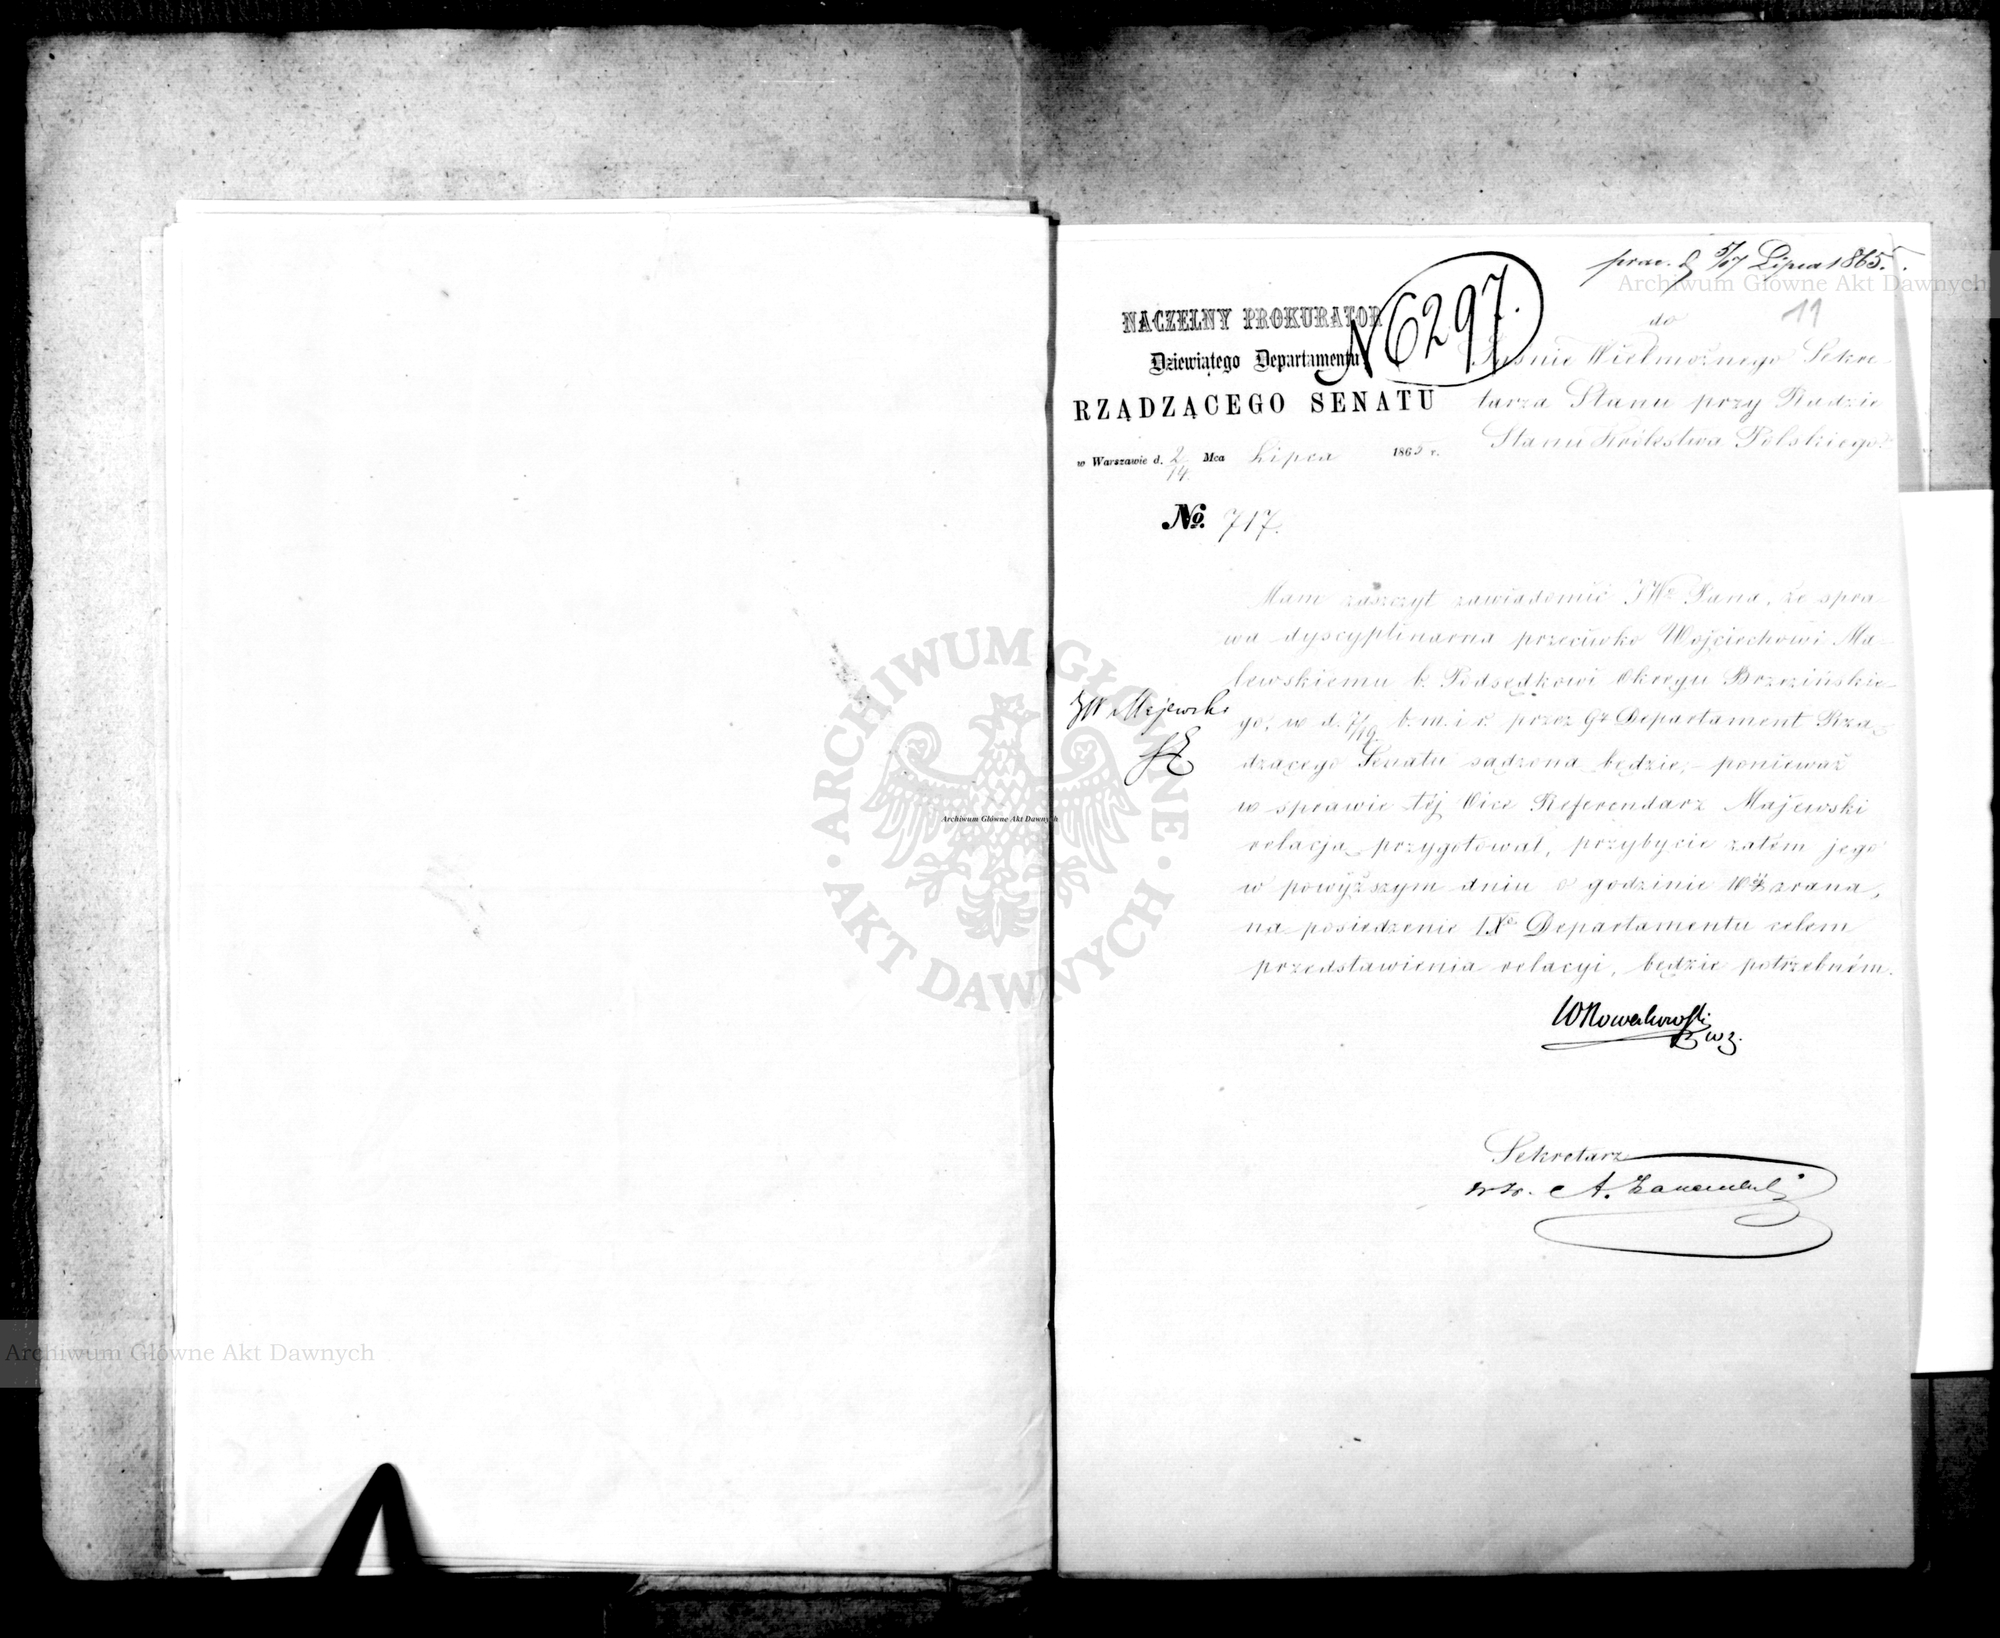 prze. d 5/17 Lipca 1865.
Archiwum Główne Akt Dawnych
11
N 6297.
NACZELNY PROKURATOR
Dziewiątego Departamentu
RZĄDZĄCEGO SENATU
w Warszawie d. 2/14 Mca Lipca 1865 r.
No. 717.
do
Jaśnie Wielmożnego Sekre-
tarza Stanu przy Radzie
Stanu Królestwa Polskiego.
Mam zaszczyt zawiadomić JWo Pana, że spra-
wa dyscyplinarna przeciwko Wojciechowi Ma-
lewskiemu b. Podsędkowi Okręgu Brzezińskie-
go, w d. 7/19 b. m. i r. przez 9ty Departament Rzą-
dzącego Senatu sądzona będzie; – ponieważ
w sprawie téj Vice Referendarz Majewski
relacją przygotował, przybycie zatém jego
w powyższym dniu o godzinie 10éj zrana,
na posiedzenie IXo Departamentu celem
przedstawienia relacyi, będzie potrzebném.
JW Majewski
WNowakowski
wz.
Sekretarz
A.
ARCHIWUM GŁÓWNE
AKT DAWNYCH
Archiwum Główne Akt Dawnych
Archiwum Główne Akt Dawnych